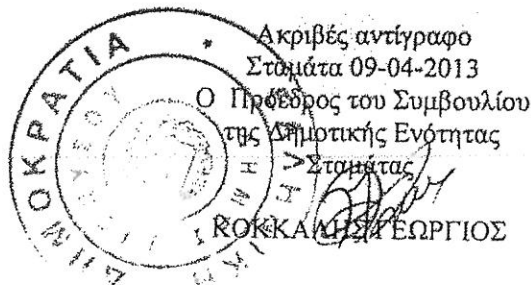 Ακριβές αντίγραφο
Σταμάτα 09-04-2013
Ο Πρόεδρος του Συμβουλίου
της Δημοτικής Ενότητας
Σταμάτας
ΡΟΚΚΑΛΗΣ ΓΕΩΡΓΙΟΣ
ΔΗΜΟΚΡΑΤΙΑ